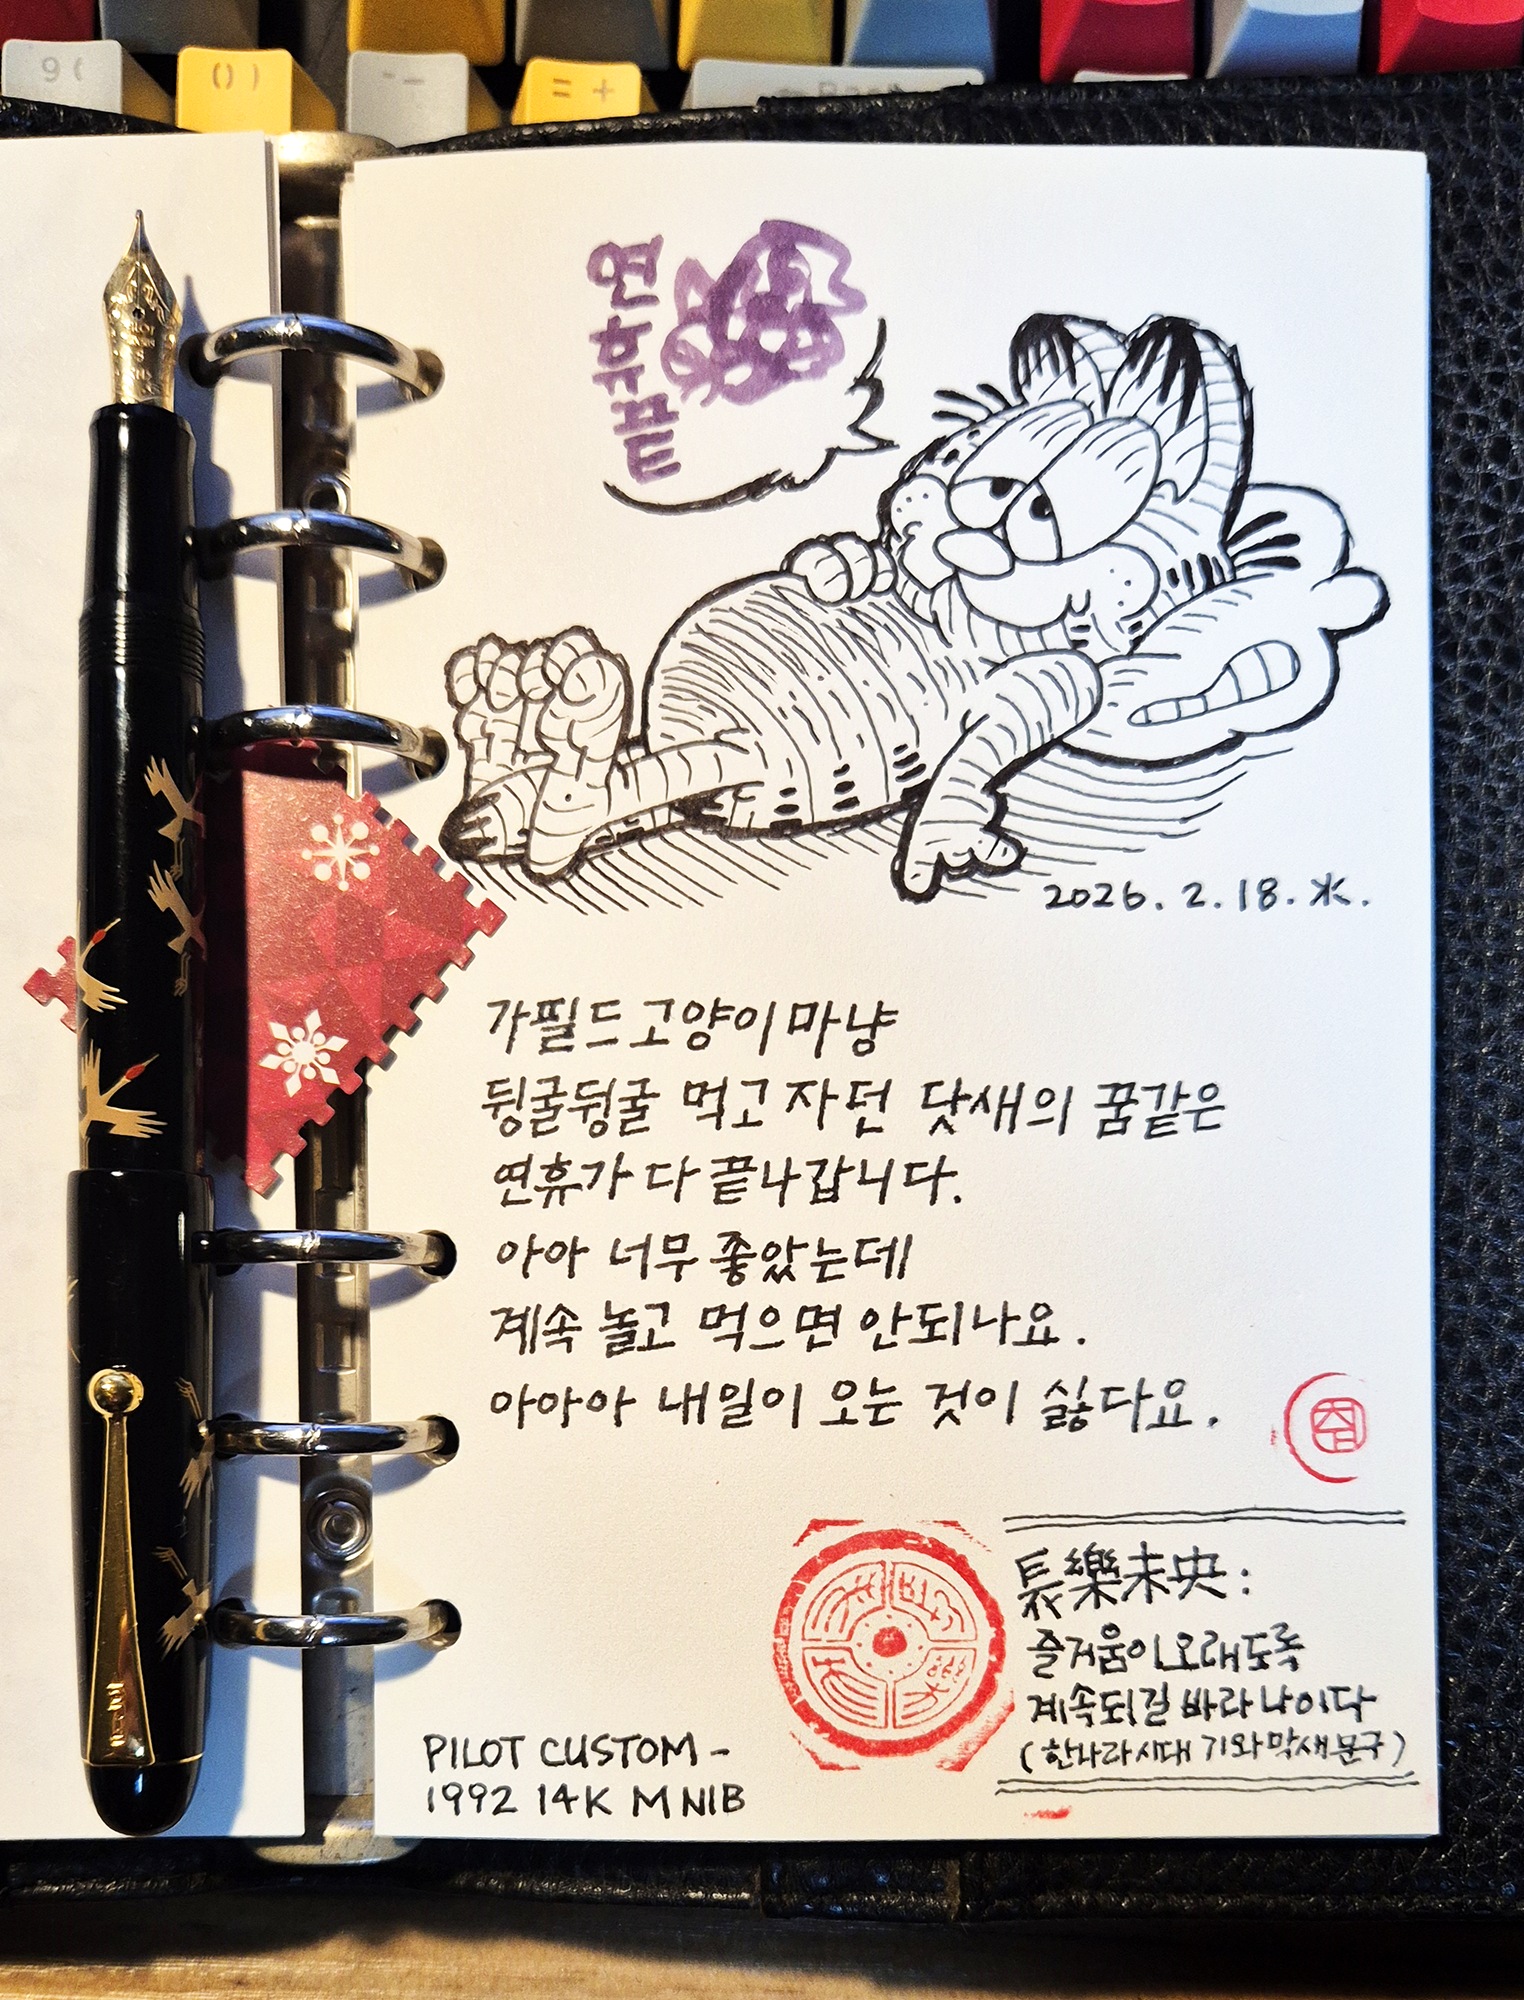 9 (
0 )
- —
= +
연
휴
끝
2026. 2. 18. 水.
가필드 고양이 마냥
뒹굴뒹굴 먹고 자던 닷새의 꿈같은
연휴가 다 끝나갑니다.
아아 너무 좋았는데
계속 놀고 먹으면 안되나요.
아아아 내일이 오는 것이 싫다요.
長樂未央:
즐거움이 오래도록
계속되길 바라나이다
(한나라시대 기와막새문구)
PILOT CUSTOM -
1992 14K M NIB